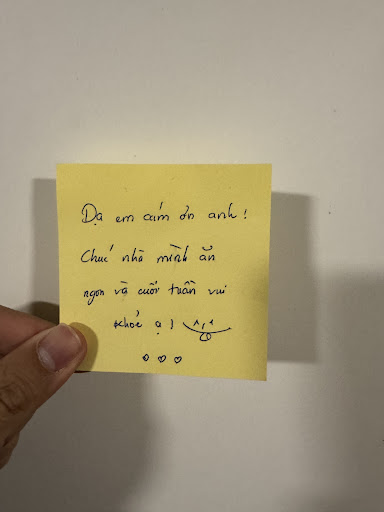 Dạ em cám ơn anh!
Chúc nhà mình ăn
ngon và cuối tuần vui
khoẻ ạ!